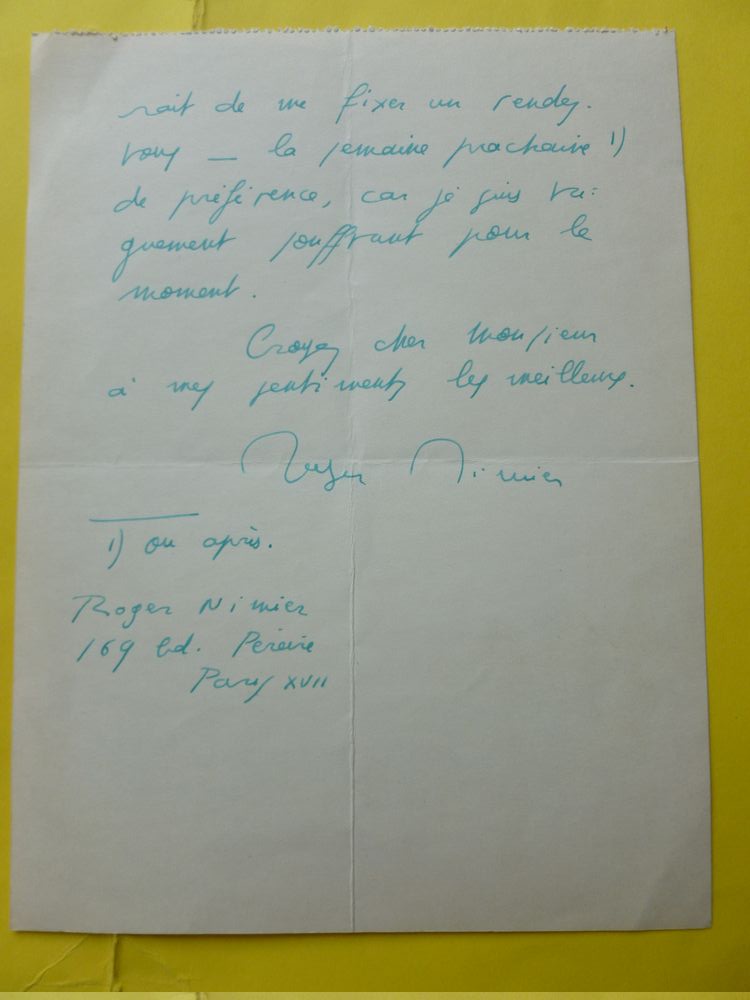 rait de me fixer un rendez-
vous — la semaine prochaine 1)
de préférence, car je suis va-
guement souffrant pour le
moment.
Croyez cher Monsieur
à mes sentiments les meilleurs.
Roger Nimier
1) ou après.
Roger Nimier
169 bd. Pereire
Paris XVII